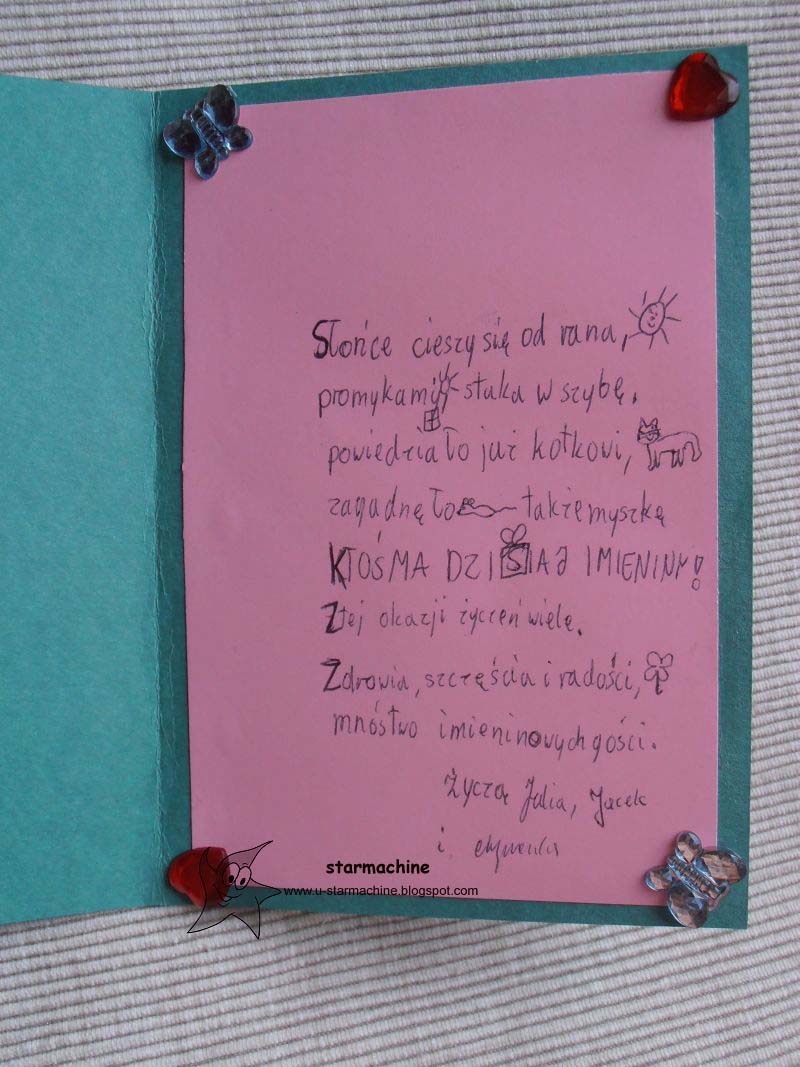 Słońce cieszy się od rana,
promykami stuka w szybę.
powiedziało już kotkowi,
zagadnęło także myszkę
KTOŚ MA DZISIAJ IMIENINY!
Z tej okazji życzeń wiele.
Zdrowia, szczęścia i radości,
mnóstwo imieninowych gości.
Życzą Julia, Jacek
i
starmachine
www.u-starmachine.blogspot.com